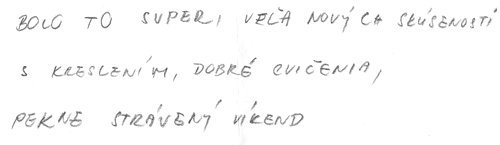 BOLO TO SUPER, VEĽA NOVÝCH SKÚSENOSTÍ
S KRESLENÍM, DOBRÉ CVIČENIA,
PEKNE STRÁVENÝ VÍKEND